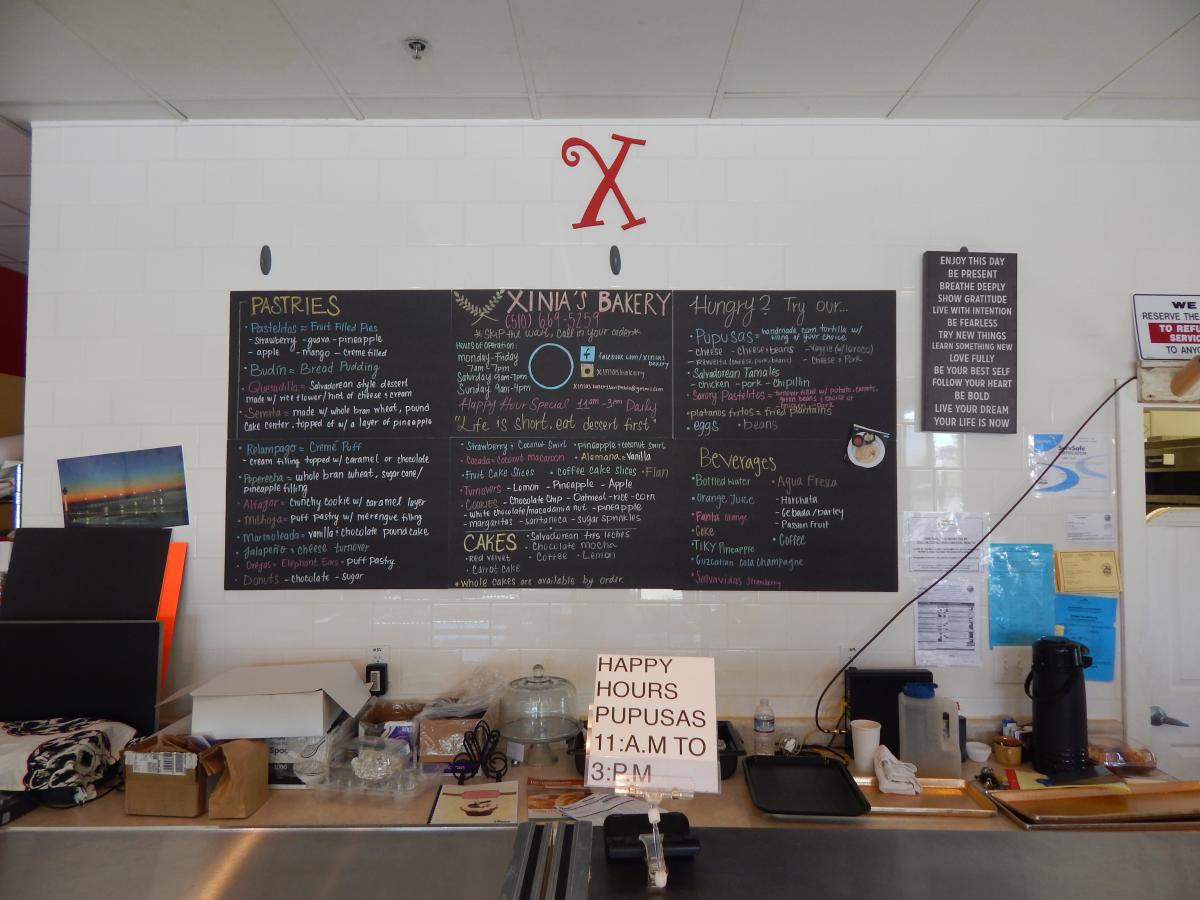 X
PASTRIES
Pastelitos = Fruit Filled Pies
- Strawberry - guava - pineapple
- apple - mango - creme filled
Budin = Bread Pudding
Quesadilla = Salvadorean style dessert
made w/ rice flower/hint of cheese & cream
Semita = made w/ whole bran wheat, pound
cake center, topped of w/ a layer of pineapple
Relampago = Cremé Puff
cream filling topped w/ caramel or chocolate
Peperecha = whole bran wheat, sugar cane/
pineapple filling
Alfajor = crunchy cookie w/ caramel layer
Milhoja = puff pastry w/ merengue filling
Marmoleada = vanilla & chocolate pound cake
Jalapeño & cheese turnover
Orejas = Elephant Ears - puff Pastry
Donuts - chocolate - sugar
XINIA'S BAKERY
(510) 669-5259
*Skip the wait, call in your order*
Hours of Operation:
monday-Friday
7am-7pm
Saturday 9am-7pm
Sunday 9am-4pm
facebook.com/xinias
bakery
xiniasbakery
Happy Hour Special 11am-3pm Daily
"Life is short, eat dessert first"
Strawberry & Coconut Swirl • pineapple & coconut swirl
Cocada = Coconut macaroon • Alemana = Vanilla
Fruit Cake Slices • Coffee Cake Slices • Flan
Turnovers - Lemon - Pineapple - Apple
Cookies - Chocolate Chip - Oatmeal - rice - corn
- white chocolate/macadamia nut - pineapple
- margaritas - santaneca - sugar sprinkles
CAKES
• Salvadorean tres leches
• Chocolate mocha
• Red Velvet
• Coffee • Lemon
• Carrot Cake
*whole cakes are available by order.
Hungry? Try our...
Pupusas = handmade corn tortilla w/
filling of your choice
- cheese - cheese & beans - Veggie (w/loroco)
- Revuelta (cheese, pork, beans) - Cheese & Pork
Salvadorean Tamales
- chicken - pork - Chipilin
Savory Pastelitos = turnover filled w/ potato, carrots,
green beans & choice of
chicken - Pork
platanos fritos = fried plantains
eggs • beans
Beverages
Bottled Water
Orange Juice
Fanta Orange
Coke
TIKY Pineapple
Cuzcatlan Cola Champagne
Salvavidas Strawberry
Agua Fresca
- Horchata
- Cebada/barley
- Passion fruit
Coffee
ENJOY THIS DAY
BE PRESENT
BREATHE DEEPLY
SHOW GRATITUDE
LIVE WITH INTENTION
BE FEARLESS
TRY NEW THINGS
LEARN SOMETHING NEW
LOVE FULLY
BE YOUR BEST SELF
FOLLOW YOUR HEART
BE BOLD
LIVE YOUR DREAM
YOUR LIFE IS NOW
WE
RESERVE THE
TO REFU
SERVIC
TO ANYO
ServSafe
HAPPY
HOURS
PUPUSAS
11:A.M TO
3:P.M